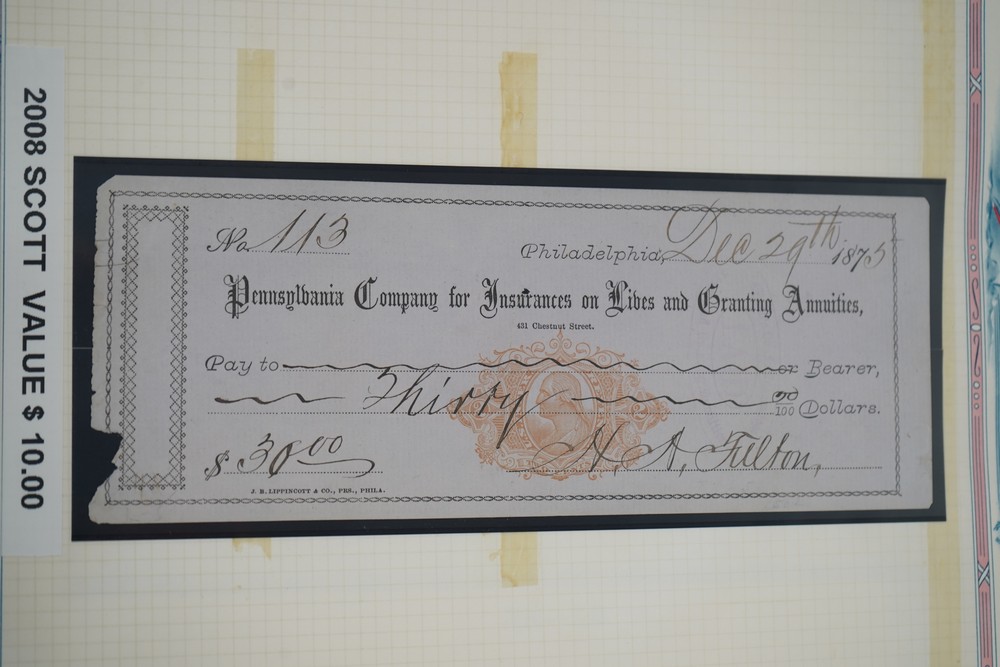 2008 SCOTT VALUE $ 10.00
No. 113
Philadelphia, Dec 29th 1875
Pennsylvania Company for Insurances on Lives and Granting Annuities,
431 Chestnut Street.
Pay to or Bearer,
Thirty 00/100 Dollars.
$ 30 00
H. A. Fulton,
J. B. LIPPINCOTT & CO., PRS., PHILA.